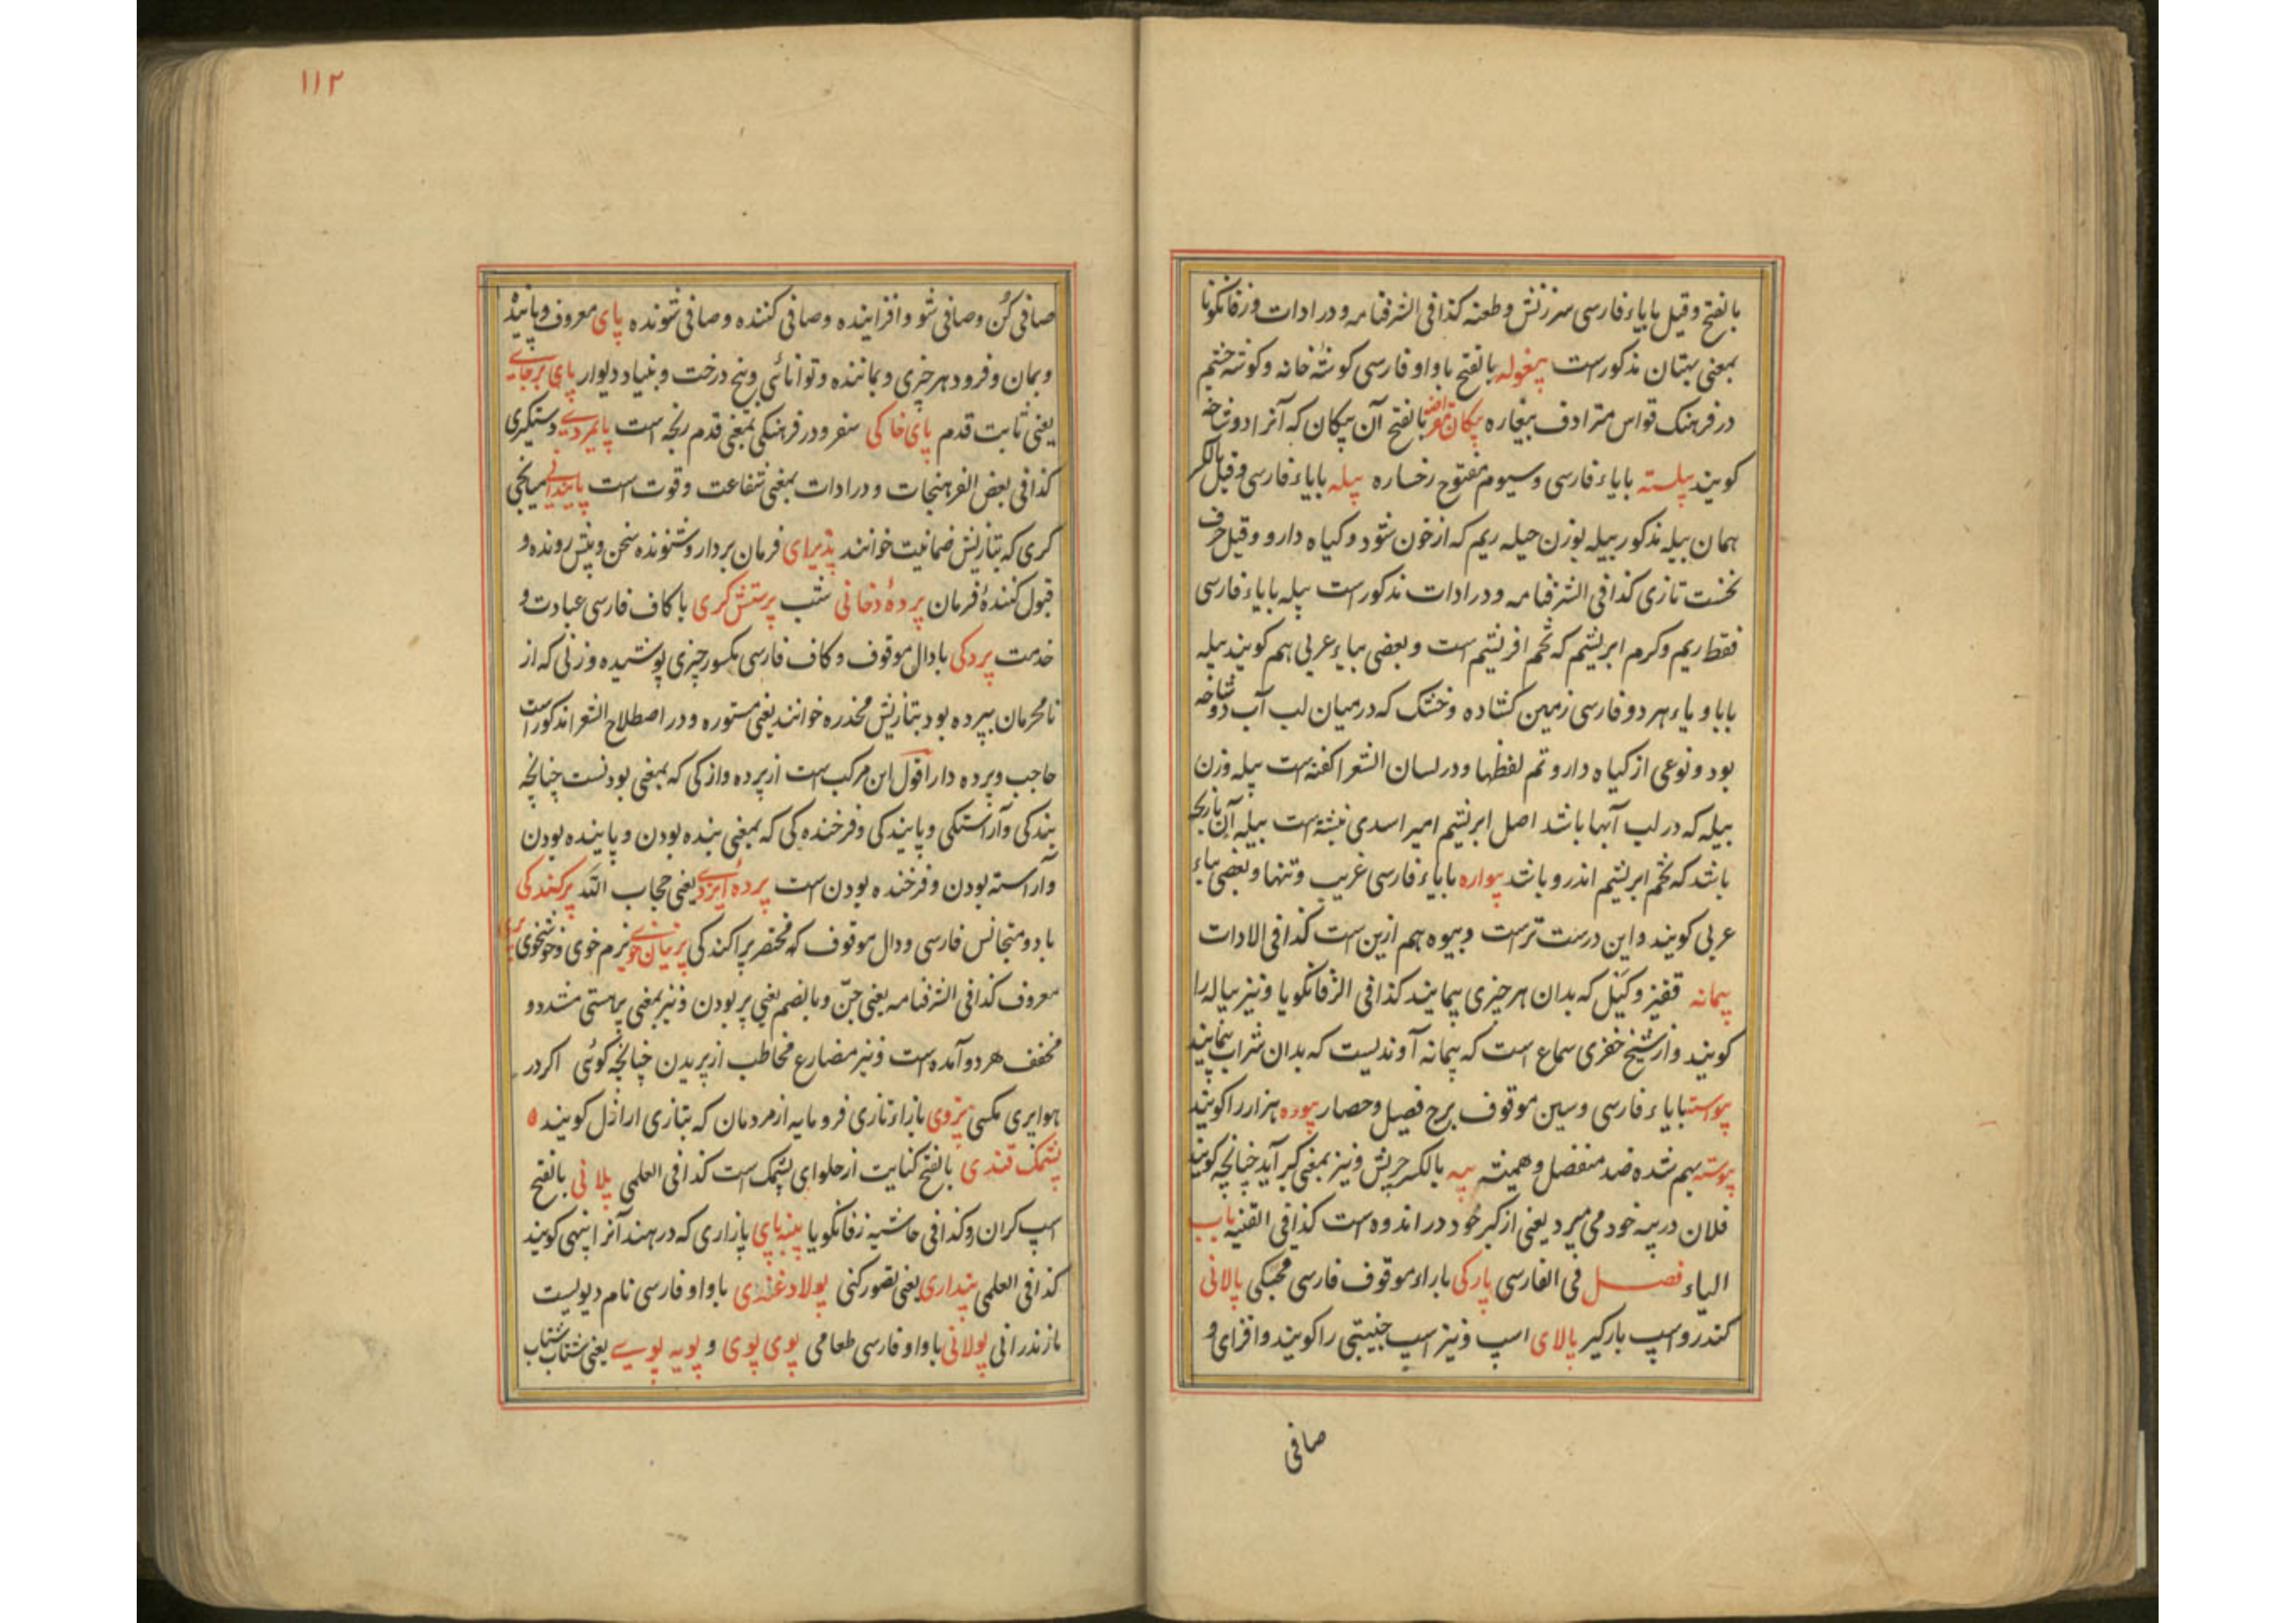 بالفتح وقیل بایاء فارسی سرزنش وطعنه کذا فی الشرفنامه ودر ادات وزفانگویا
بمعنی بهتان مذکورست پیغوله بالفتح باواو فارسی گوشهٔ خانه وگوشه چشم
در فرهنگ قواس مترادف بیغاره پیکان بالفتح آن پیکان که آنرا دوشاخه
کویند پیلسته بایاء فارسی وسیوم مفتوح رخساره پیله بایاء فارسی وقیل بالکسر
همان بیله مذکور بیله بوزن حیله ریم که از خون شود وکیاه دارو وقیل حرف
نخست تازی کذا فی الشرفنامه ودر ادات مذکورست پیله بایاء فارسی
فقط ریم وکرم ابریشم که تخم افریشم است وبعضی بباء عربی هم کویند بیله
بابا ویاء هر دو فارسی زمین کشاده وخشک که درمیان لب آب دوشاخه
بود ونوعی از کیاه دارو تم لفظها ودر لسان الشعرا کفته است پیله وزن
بیله که در لب آبها باشد اصل ابریشم امیر اسدی نبشته است بیله آن پارچه
باشد که تخم ابریشم اندرو باشد پیواره بایاء فارسی غریب وتنها وبعضی بباء
عربی کویند واین درست ترست وبیوه هم ازین ست کذا فی الادات
پیمانه قفیز وکیل که بدان هر چیزی پیمایند کذا فی الزفانکویا ونیز پیاله را
کویند واز شیخ خضری سماع است که پیمانه آوندیست که بدان شراب پیمایند
پیوسته بایاء فارسی وسین موقوف برج فصیل وحصار پیوره هزار را کویند
پیوسته بهم شده ضد منفصل وهمیشه پیه بالکسر چربش ونیز بمعنی کبر آید چنانچه کویند
فلان در پیه خود می میرد یعنی از کبر خود در اندوه است کذا فی القنیه باب
الیاء فصل فی الفارسی پارکی باراء موقوف فارسی پالانی
کندرو اسپ بارکیر پالای اسپ ونیز اسپ جنیبتی را کویند وافزای و
صافی
۱۱۲
صافی کن وصافی شو وافزاینده وصافی کننده وصافی شونده پای معروف وپاینده
وبمان وفرود هر چیزی وبماننده وتوانائی وبیخ درخت وبنیاد دیوار پای برجای
یعنی ثابت قدم پای خاکی سفر ودر فرهنکی بمعنی قدم رنجه است پایمردی دستکیری
کذا فی بعض الفرهنجات ودر ادات بمعنی شفاعت وقوت است پایندانی میانجی
کری که بتازیش ضمانیت خوانند پذیرای فرمان بردار وشنونده سخن وپیش رونده و
قبول کنندهٔ فرمان پردهٔ دخانی شب پرستش کری باکاف فارسی عبادت و
خدمت پردکی بادال موقوف وکاف فارسی مکسور چیزی پوشیده وزنی که از
نامحرمان بپرده بود بتازیش مخدره خوانند یعنی مستوره ودر اصطلاح الشعرا مذکورست
حاجب وپرده دار اقول این مرکب است از پرده واز کی که بمعنی بودنست چنانچه
بندکی وآراستکی وپایندکی وفرخنده کی که بمعنی بنده بودن وپاینده بودن
وآراسته بودن وفرخنده بودن است پرده ایزدی یعنی حجاب الله پرکندکی
بادو متجانس فارسی ودال موقوف که مختصر پراکندکی پرنیان خوی نرم خوی وخوشخوی پری
معروف کذا فی الشرفنامه یعنی جن وبالضم یعنی پر بودن ونیز بمعنی پر هستی مشدد و
مخفف هر دو آمده است ونیز مضارع مخاطب از پریدن چنانچه کوئی اکر در
هوا پری مکسی پژوی بازاء تازی فرومایه از مردمان که بتازی اراذل کویند ه
پشمک قندی بالفتح کنایت از حلوای پشمک است کذا فی العلمی پلانی بالفتح
اسپ کران رو کذا فی حاشیه زفانکویا پنبه پای پازاری که در هند آنرا پنهی کویند
کذا فی العلمی پنداری یعنی تصور کنی پولاد غندی باواو فارسی نام دیویست
مازندرانی پولانی باواو فارسی طعامی پوی پوی و پویه پویی یعنی شتاب شتاب